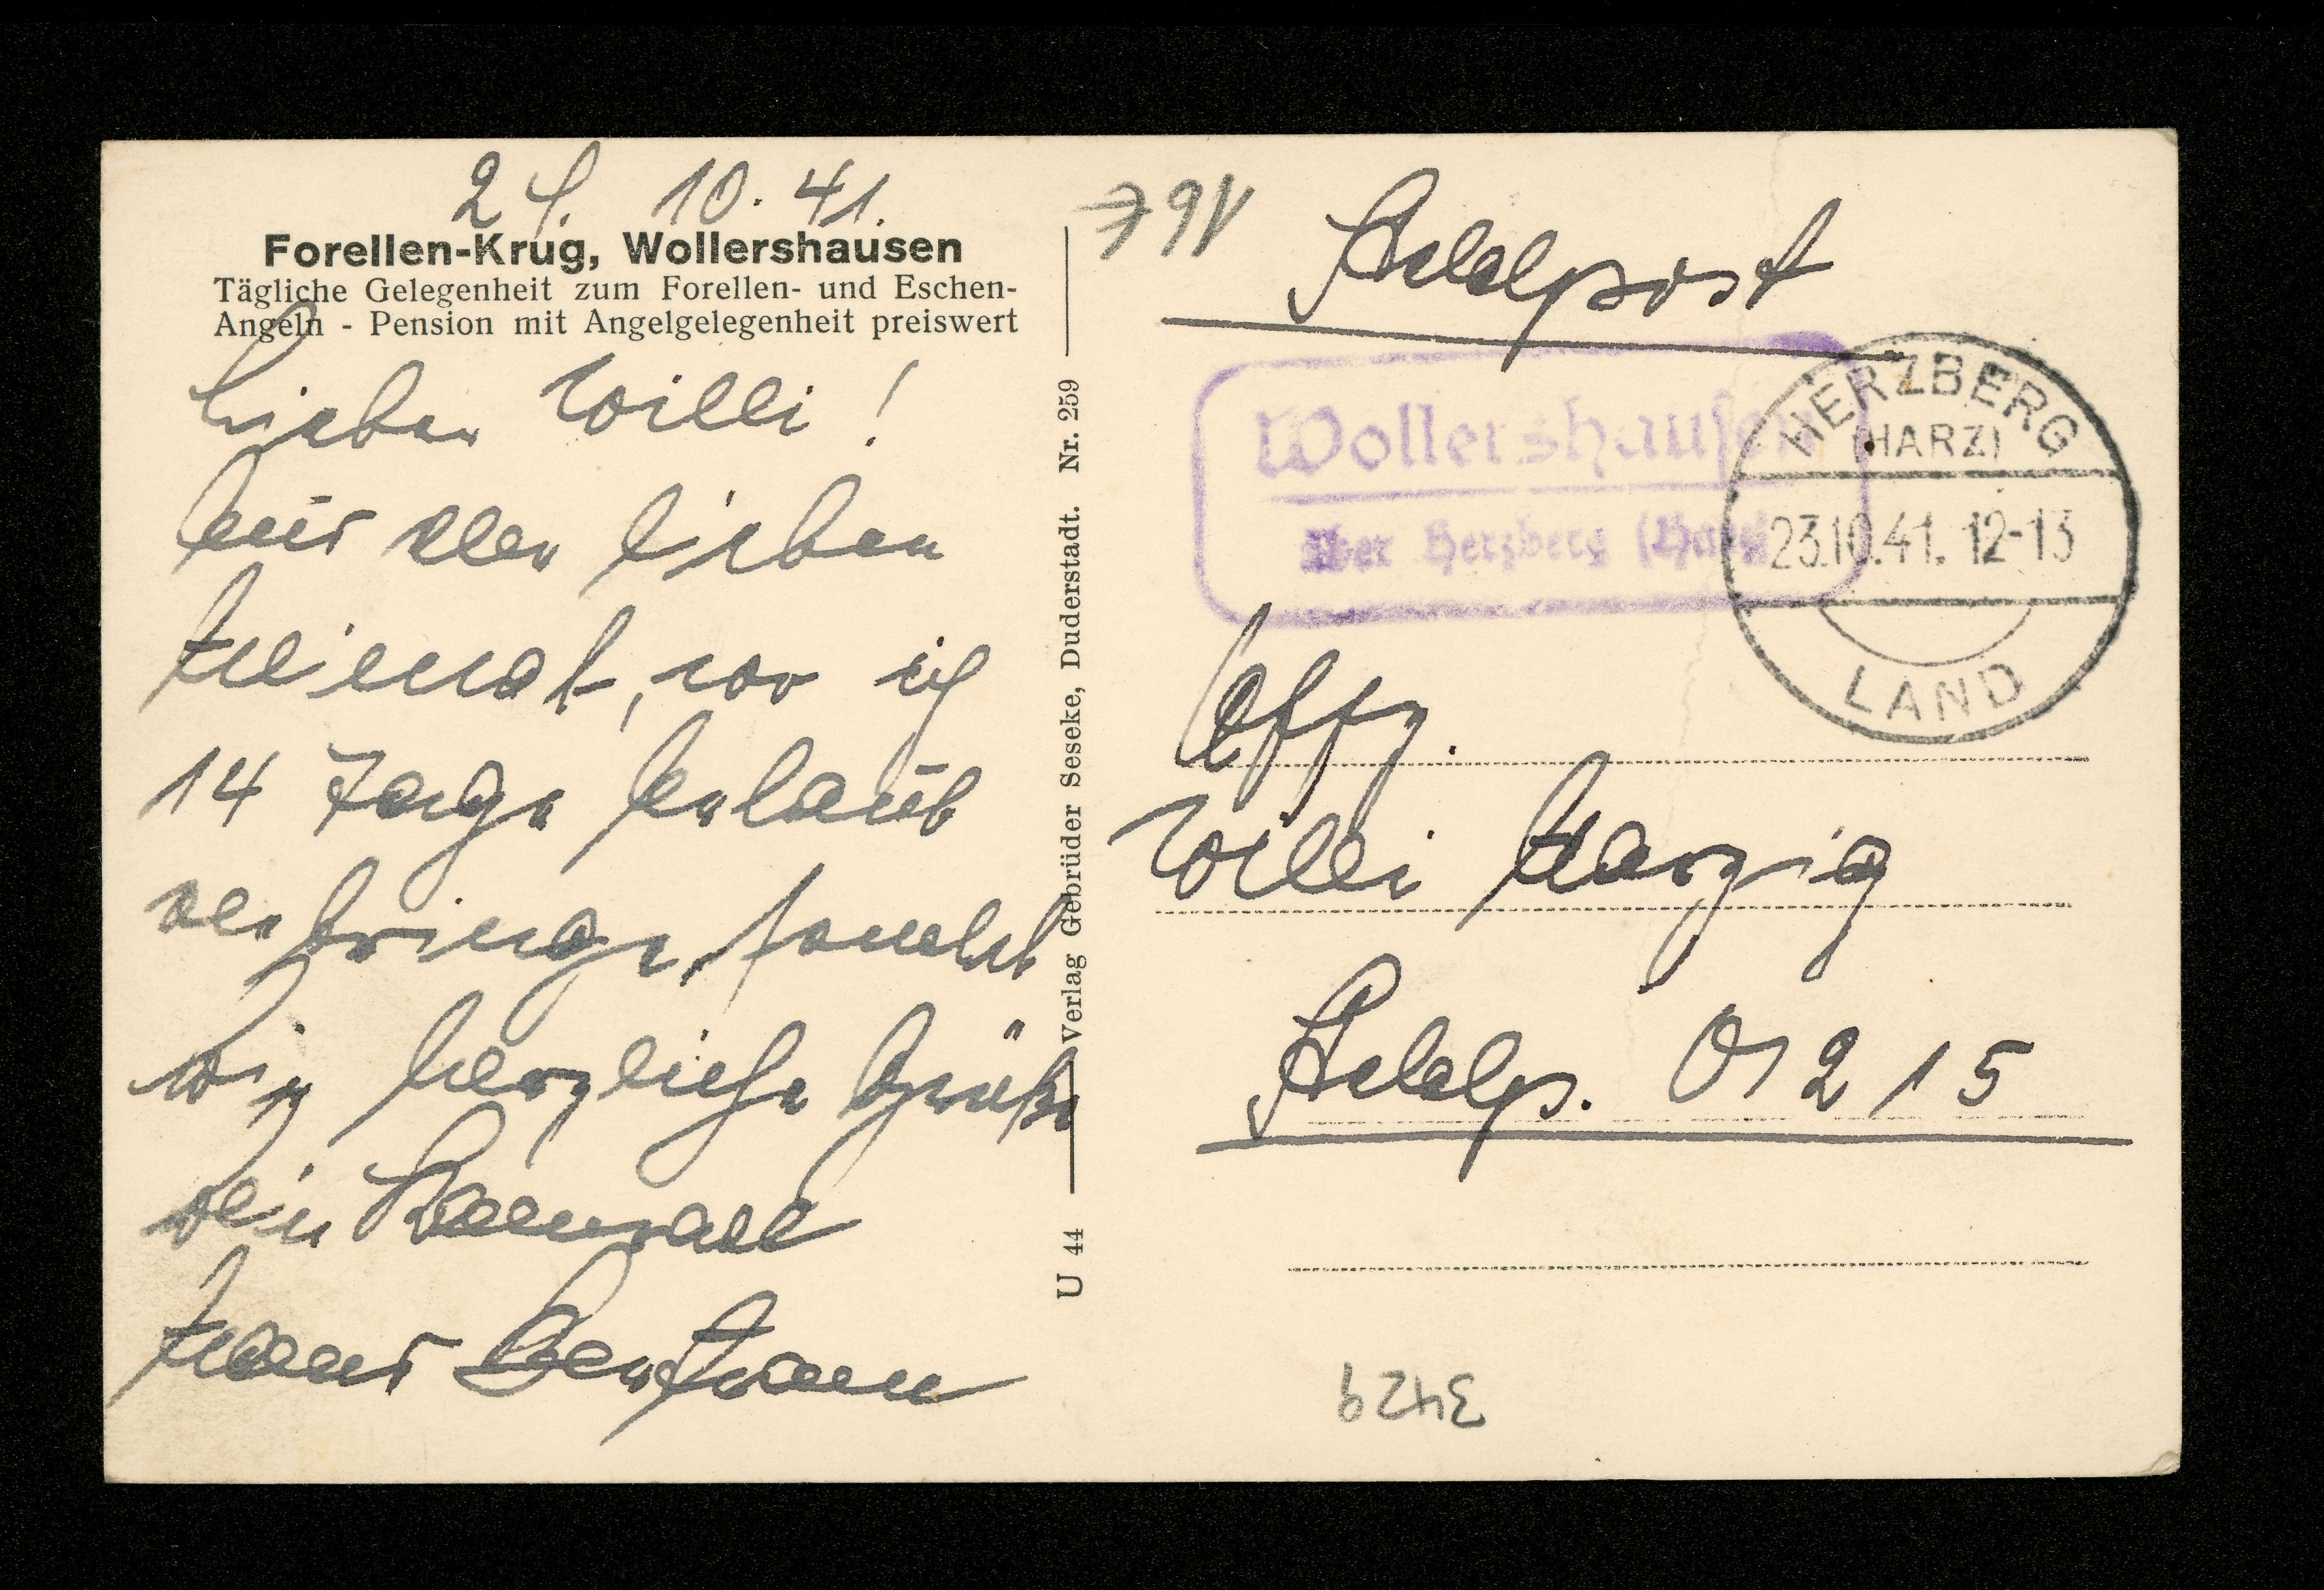 10. 41.
Forellen-Krug, Wollershausen
Tägliche Gelegenheit zum Forellen- und Eschen-
Angeln - Pension mit Angelgelegenheit preiswert
Lieber Willi !
Aus der lieben
Heimat, wo ich
14 Tage Urlaub
verbringe, sendet
Dir herzliche Grüße
Dein Kamerad
Hans Bertram
U 44 Verlag Gebrüder Seseke, Duderstadt. Nr. 259
Feldpost
Wollershausen
über Herzberg (Harz)
HERZBERG
(HARZ)
23.10.41. 12-13
LAND
Uffz.
Willi Harzig
Feldp. 01215
3429